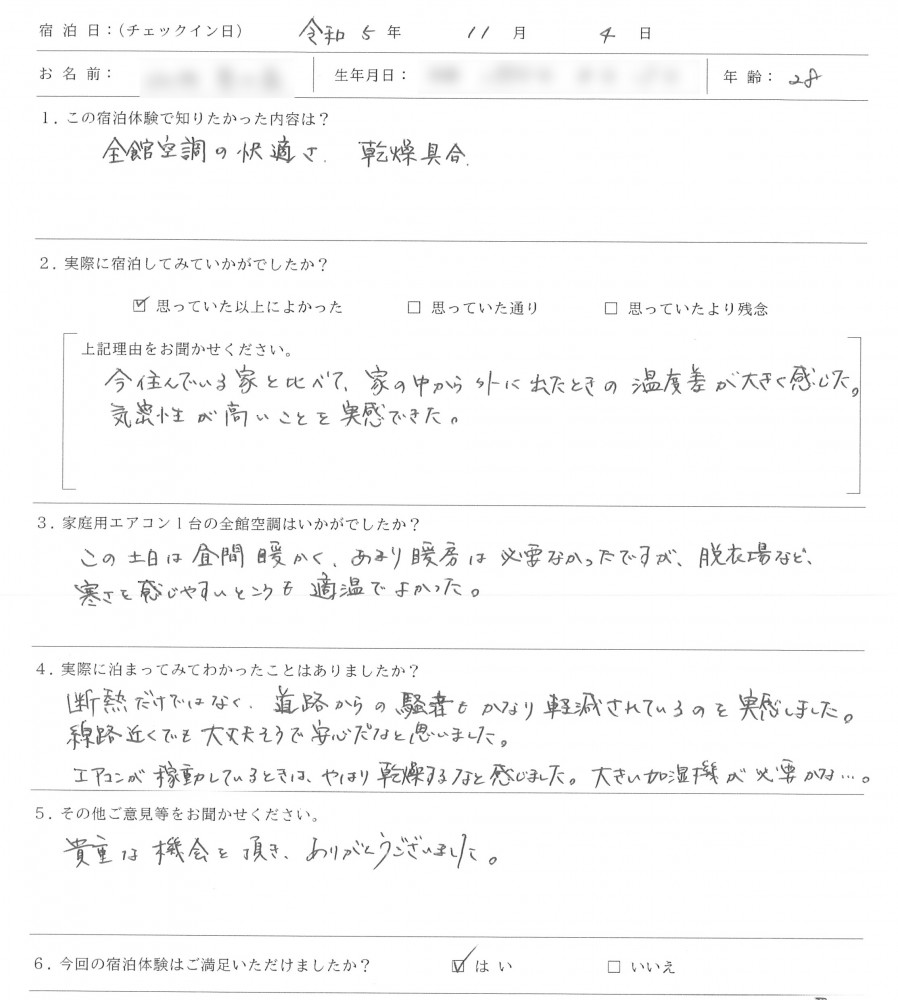 宿泊日：（チェックイン日） 令和5年 11月 4日
お名前： 生年月日： 年齢：28
1．この宿泊体験で知りたかった内容は？
全館空調の快適さ． 乾燥具合．
2．実際に宿泊してみていかがでしたか？
☑ 思っていた以上によかった □ 思っていた通り □ 思っていたより残念
上記理由をお聞かせください。
今住んでいる家と比べて、家の中から外に出たときの温度差が大きく感じた。
気密性が高いことを実感できた。
3．家庭用エアコン1台の全館空調はいかがでしたか？
この土日は昼間暖かく、あまり暖房は必要なかったですが、脱衣場など、
寒さを感じやすいところも適温でよかった。
4．実際に泊まってみてわかったことはありましたか？
断熱だけではなく、道路からの騒音もかなり軽減されているのを実感しました。
線路近くでも大丈夫そうで安心だなと思いました。
エアコンが稼動しているときは、やはり乾燥するなと感じました。大きい加湿機が必要かな…。
5．その他ご意見等をお聞かせください。
貴重な機会を頂き、ありがとうございました。
6．今回の宿泊体験はご満足いただけましたか？ ☑ はい □ いいえ